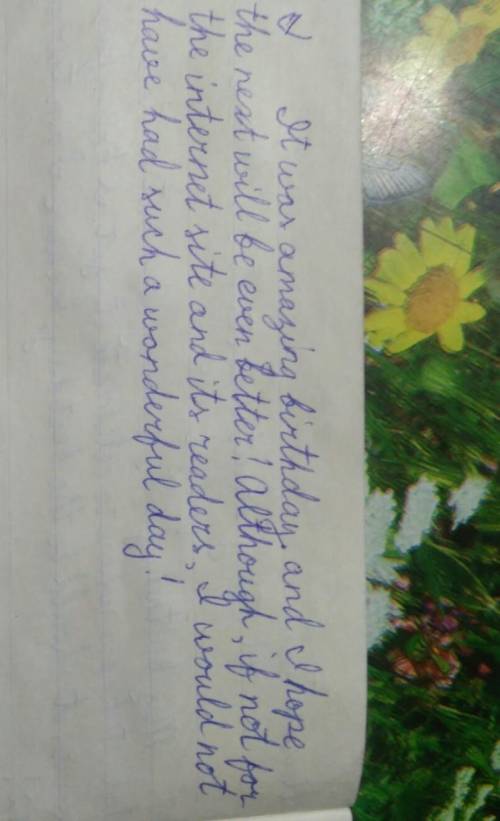 It was amazing birthday and I hope
the next will be even better! Although, if not for
the internet site and its readers, I would not
have had such a wonderful day!